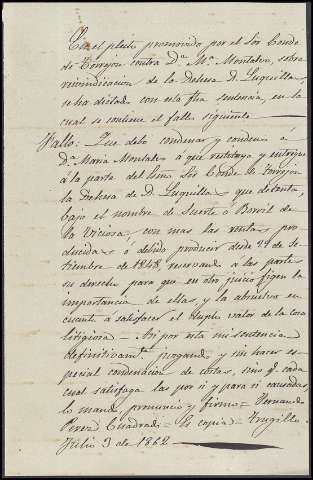 En el pleito promovido por el Sor Conde
de Torrejon contra Dª Mª Montalvo, sobre
reivindicacion de la Dehesa D. Luquilla,
se ha dictado con esta fha sentencia, en la
cual se contiene el fallo siguiente
Fallo: Que debo condenar y condeno á
Dª Maria Montalvo á que restituya y entregue
á la parte del Ilmo Sor Conde de Torrejon
la Dehesa de D. Luquilla que detenta,
bajo el nombre de Suerte ó Borril de
la Viciosa, con mas las rentas pro
ducidas ó debido producir desde 29 de Se
tiembre de 1848, reservando á las partes
su derecho para que en otro juicio fijen la
importancia de ellas, y la absuelvo en
cuanto á satisfacer el duplo valor de la cosa
litigiosa = Asi por esta mi sentencia
definitivamte juzgando y sin hacer es
pecial condenacion de costas, sino q. cada
cual satisfaga las por si y para si causadas,
lo mando, pronuncio y firmo = Fernando
Perez Cuadrado = Es copia = Trugillo
Julio 3 de 1862